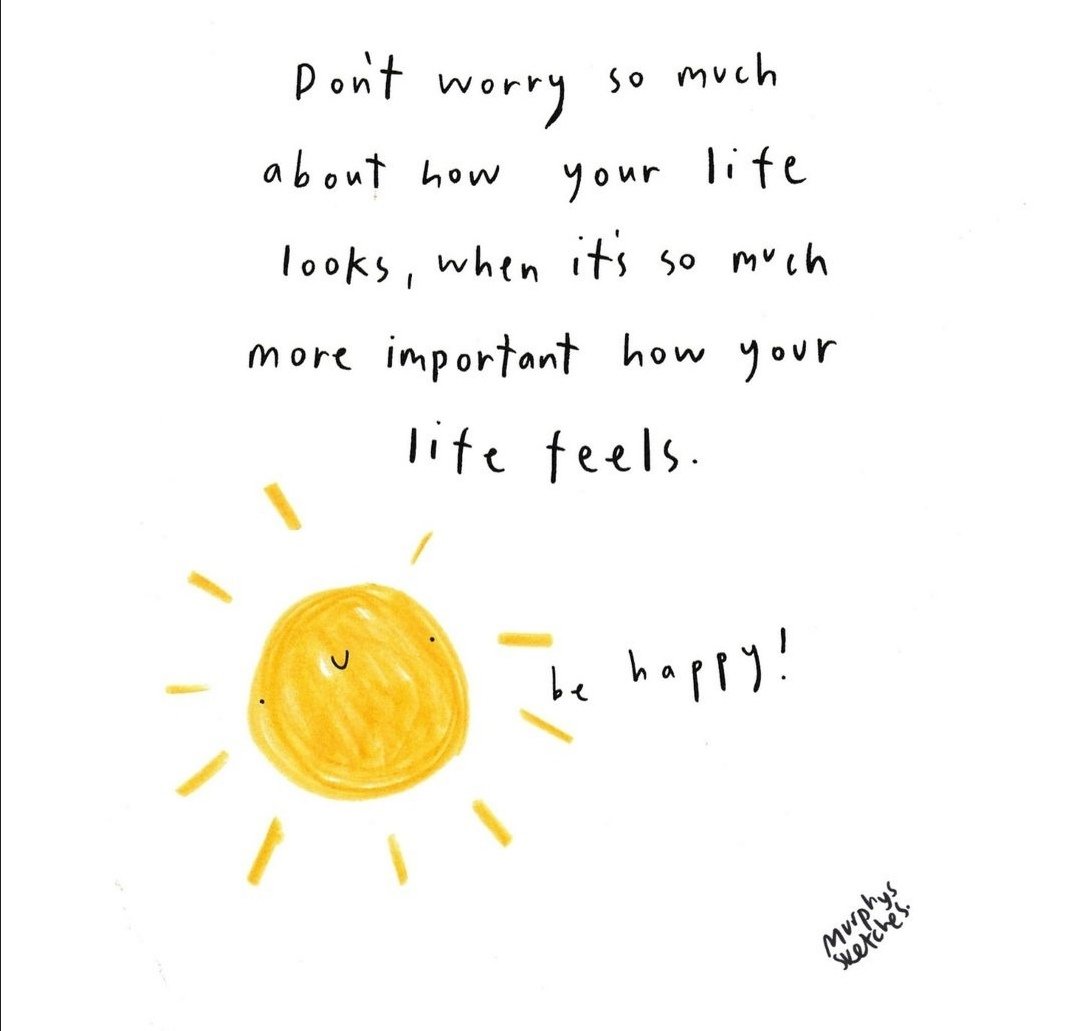 Don't worry so much
about how your life
looks, when it's so much
more important how your
life feels.
be happy!
Murphys
sketches.